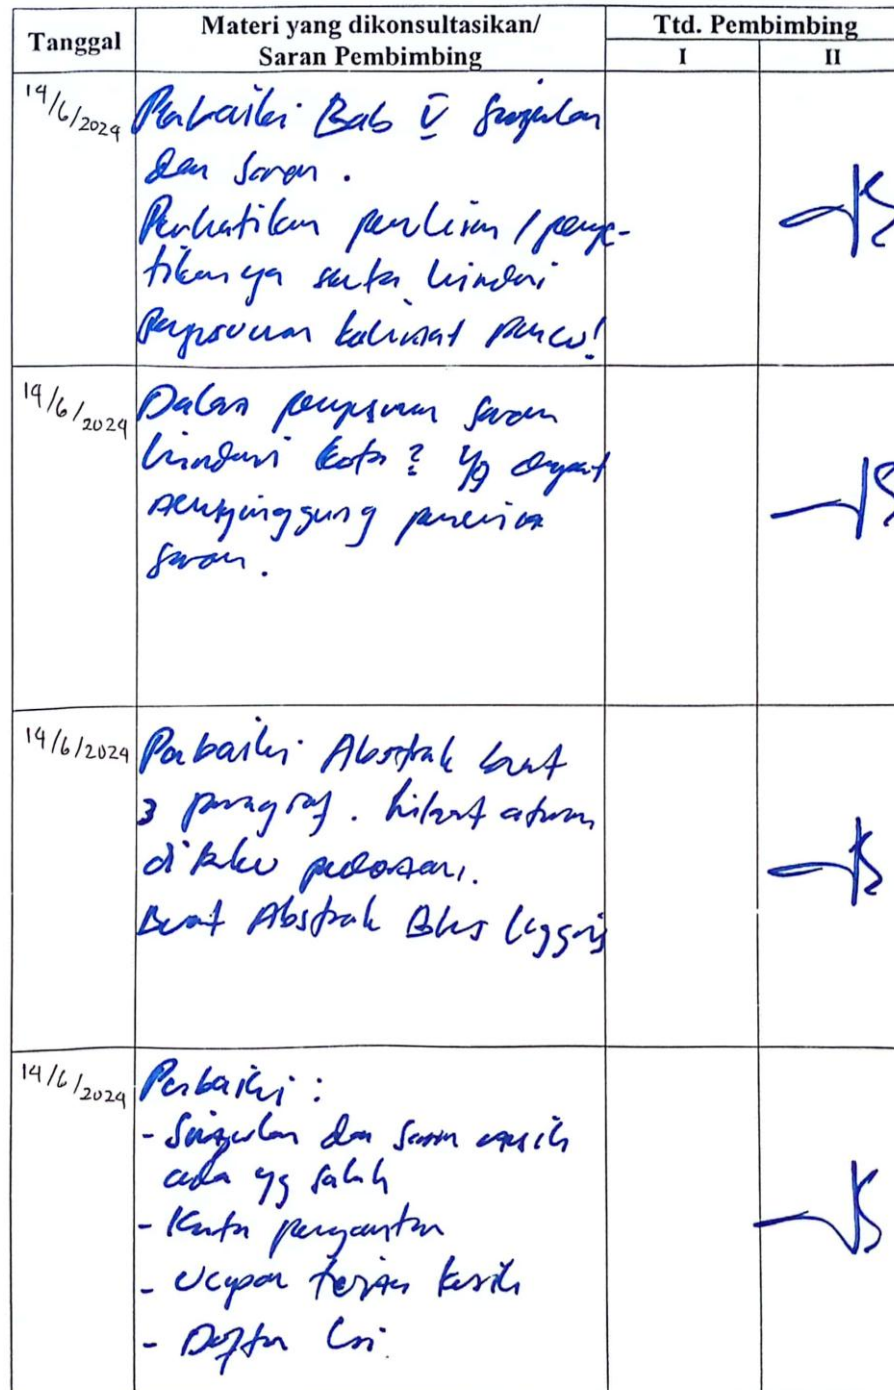 Tanggal
Materi yang dikonsultasikan/
Saran Pembimbing
Ttd. Pembimbing
I
II
14/6/2024
Perbaiki Bab V Simpulan
dan Saran.
Perhatikan penulisan / penge-
tikannya serta hindari
Penyusunan kalimat rancu!
14/6/2024
Dalam penyusunan saran
hindari kata2 yg dapat
menyinggung penerima
saran.
14/6/2024
Perbaiki Abstrak buat
3 paragraf. Lihat aturan
di buku pedoman.
Buat Abstrak Bhs Inggris
14/6/2024
Perbaiki:
- Simpulan dan Saran masih
ada yg salah
- Kata pengantar
- Ucapan terima kasih
- Daftar Isi